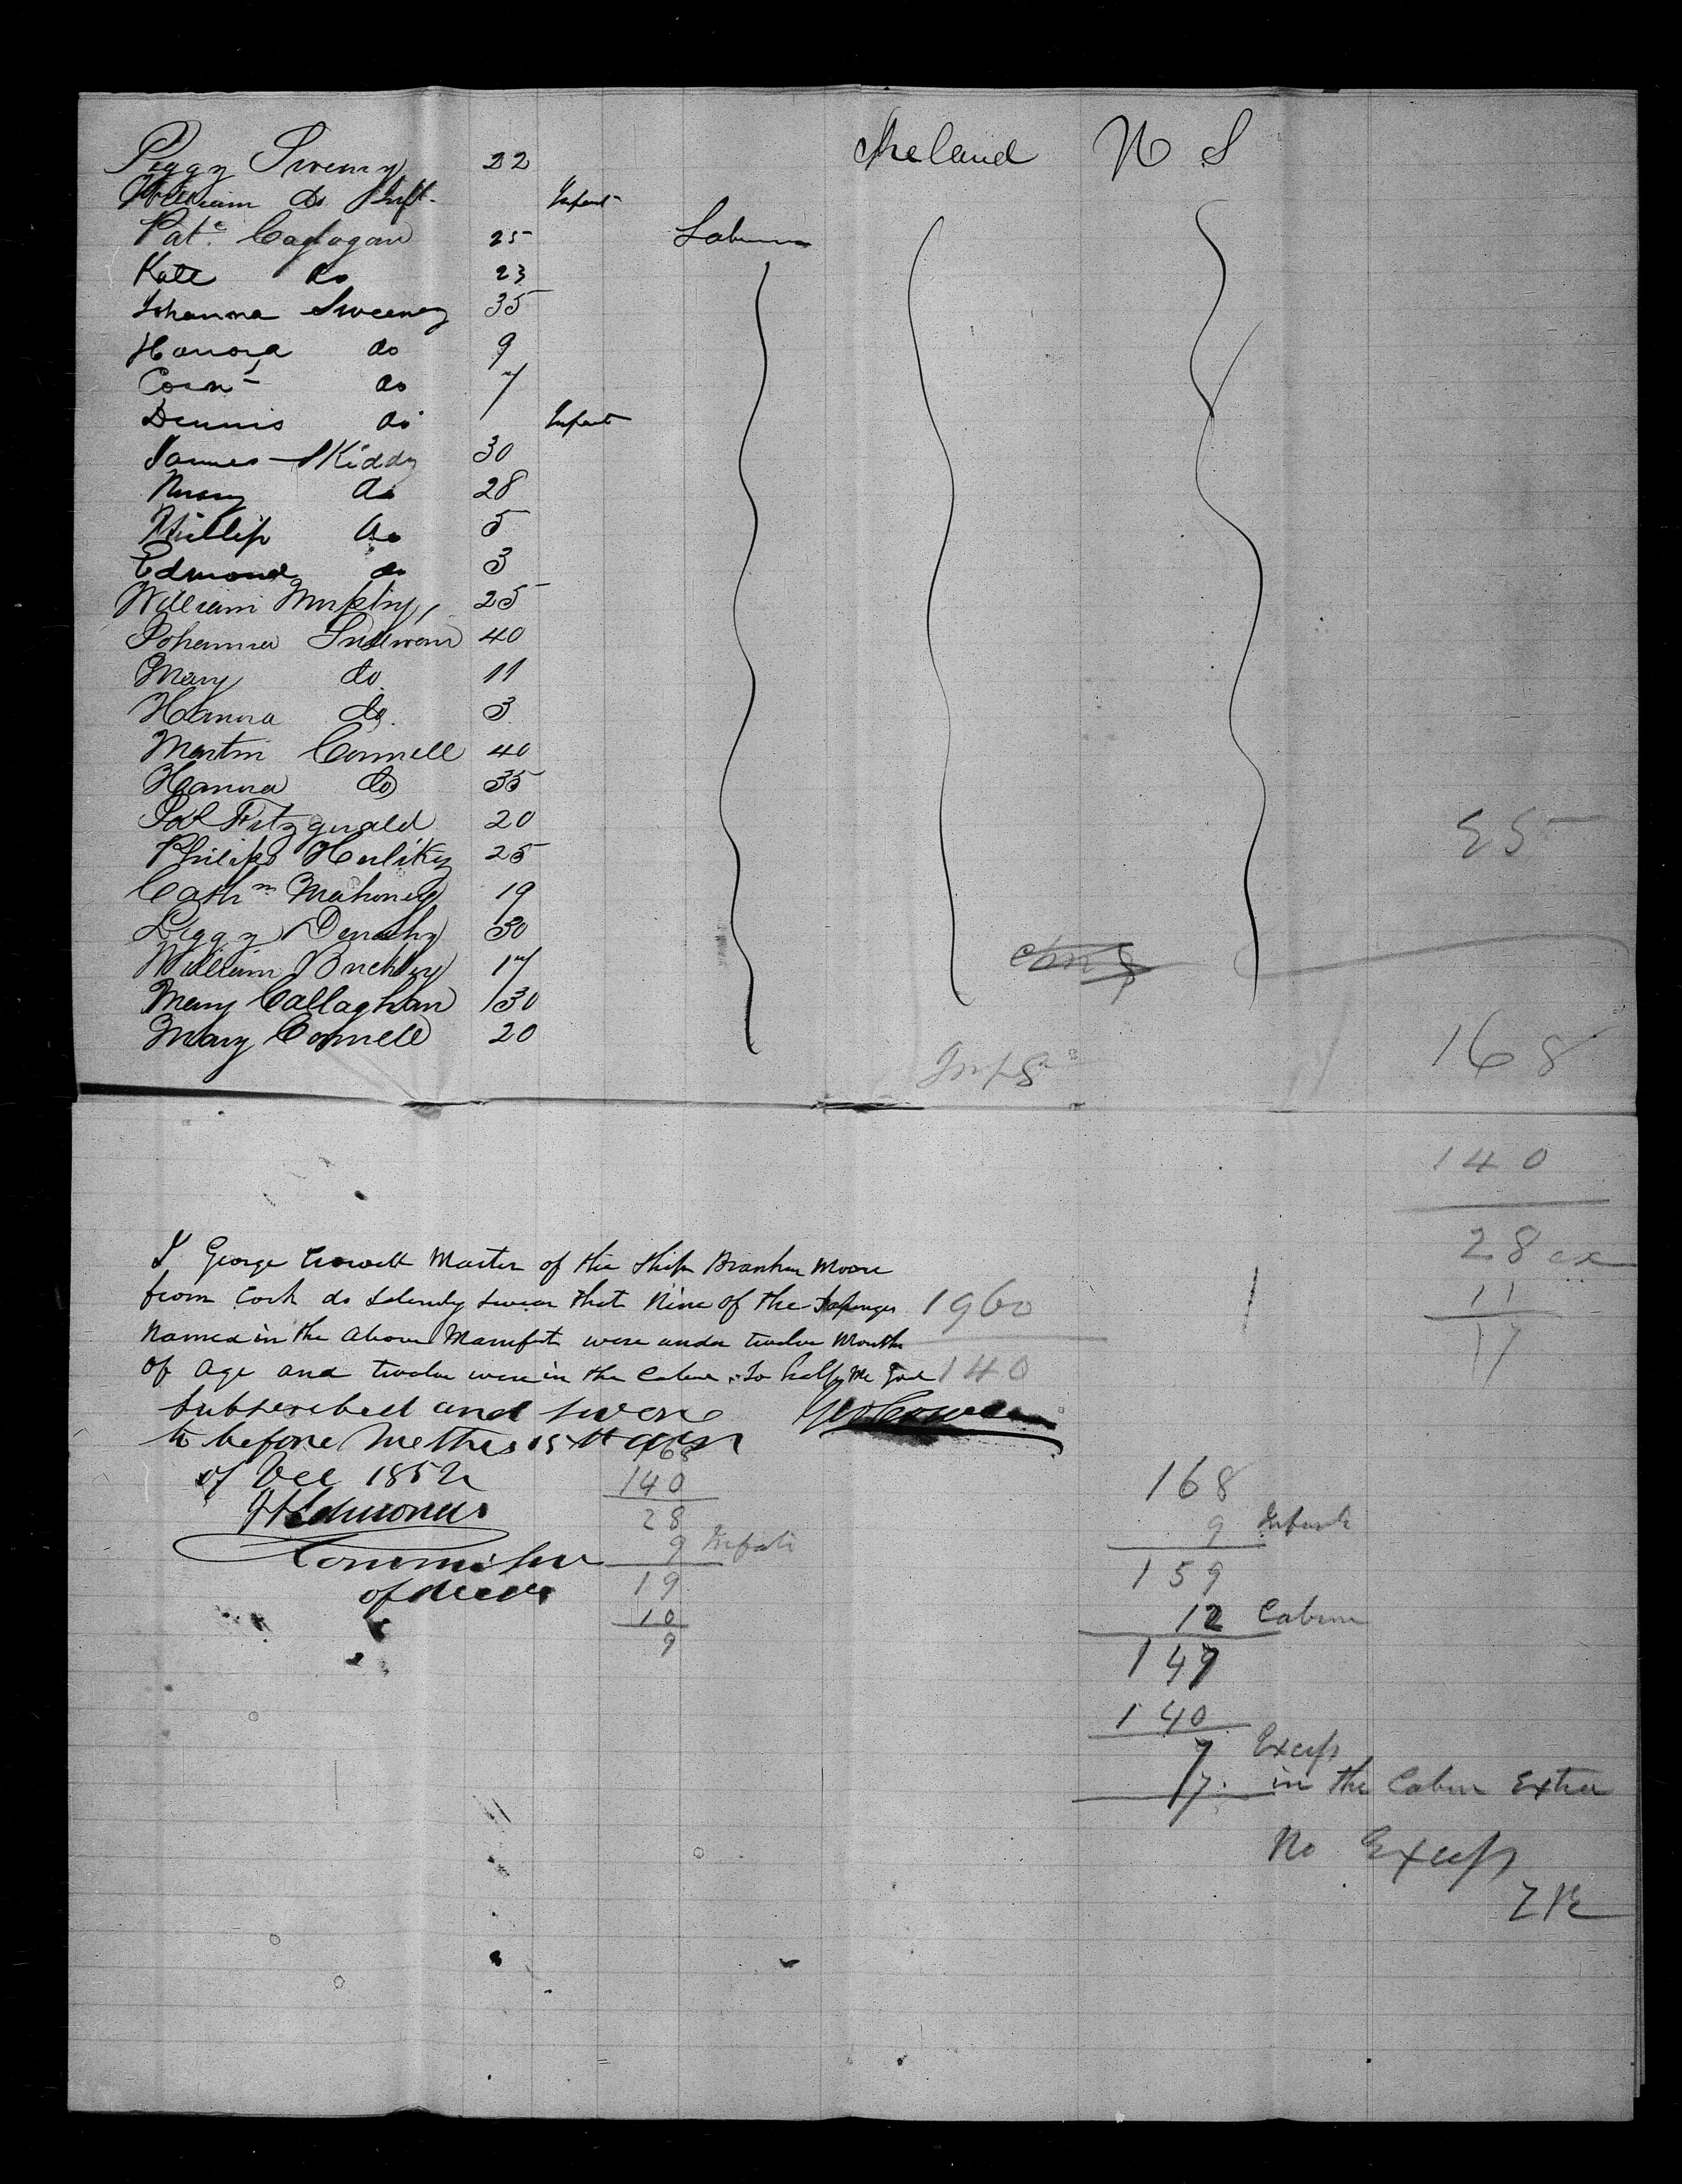 Peggy Sweeny 22 Ireland N S
William do Inft. Infant
Pat. 25 Laborer
Kate do 23
Johanna Sweeney 35
Honora do 9
Corns do 7
Dennis do Infant
James Skiddy 30
Mary do 28
Phillip do 5
Edmond do 3
William Murphy, 25
Johanna Sullivan 40
Mary do 11
Hanna do. 3
Martin Connell 40
Hanna do 35
Pat Fitzgerald 20
Philip Herlihy 25
Cathn Mahoney 19
Peggy 30
William Buckley 17
Mary Callaghan 30
Mary Connell 20
168
140
28 ex
11
17
I George Crowell Master of the Ship Moore
from Cork do Solemnly swear that Nine of the Passengers 1960
Named in the Above Manifest were under twelve Months
of Age and twelve were in the Cabin. So help Me God 140
Subscribed and sworn Geo Crowell
to before me this 15th day
of Dec 1852
J H Edmonds
Commissioner
of deeds
168
140
28
9 Infants
19
10
9
168
9 Infants
159
12 Cabin
147
140
7 Excess
7. in the Cabin Extra
No Excess